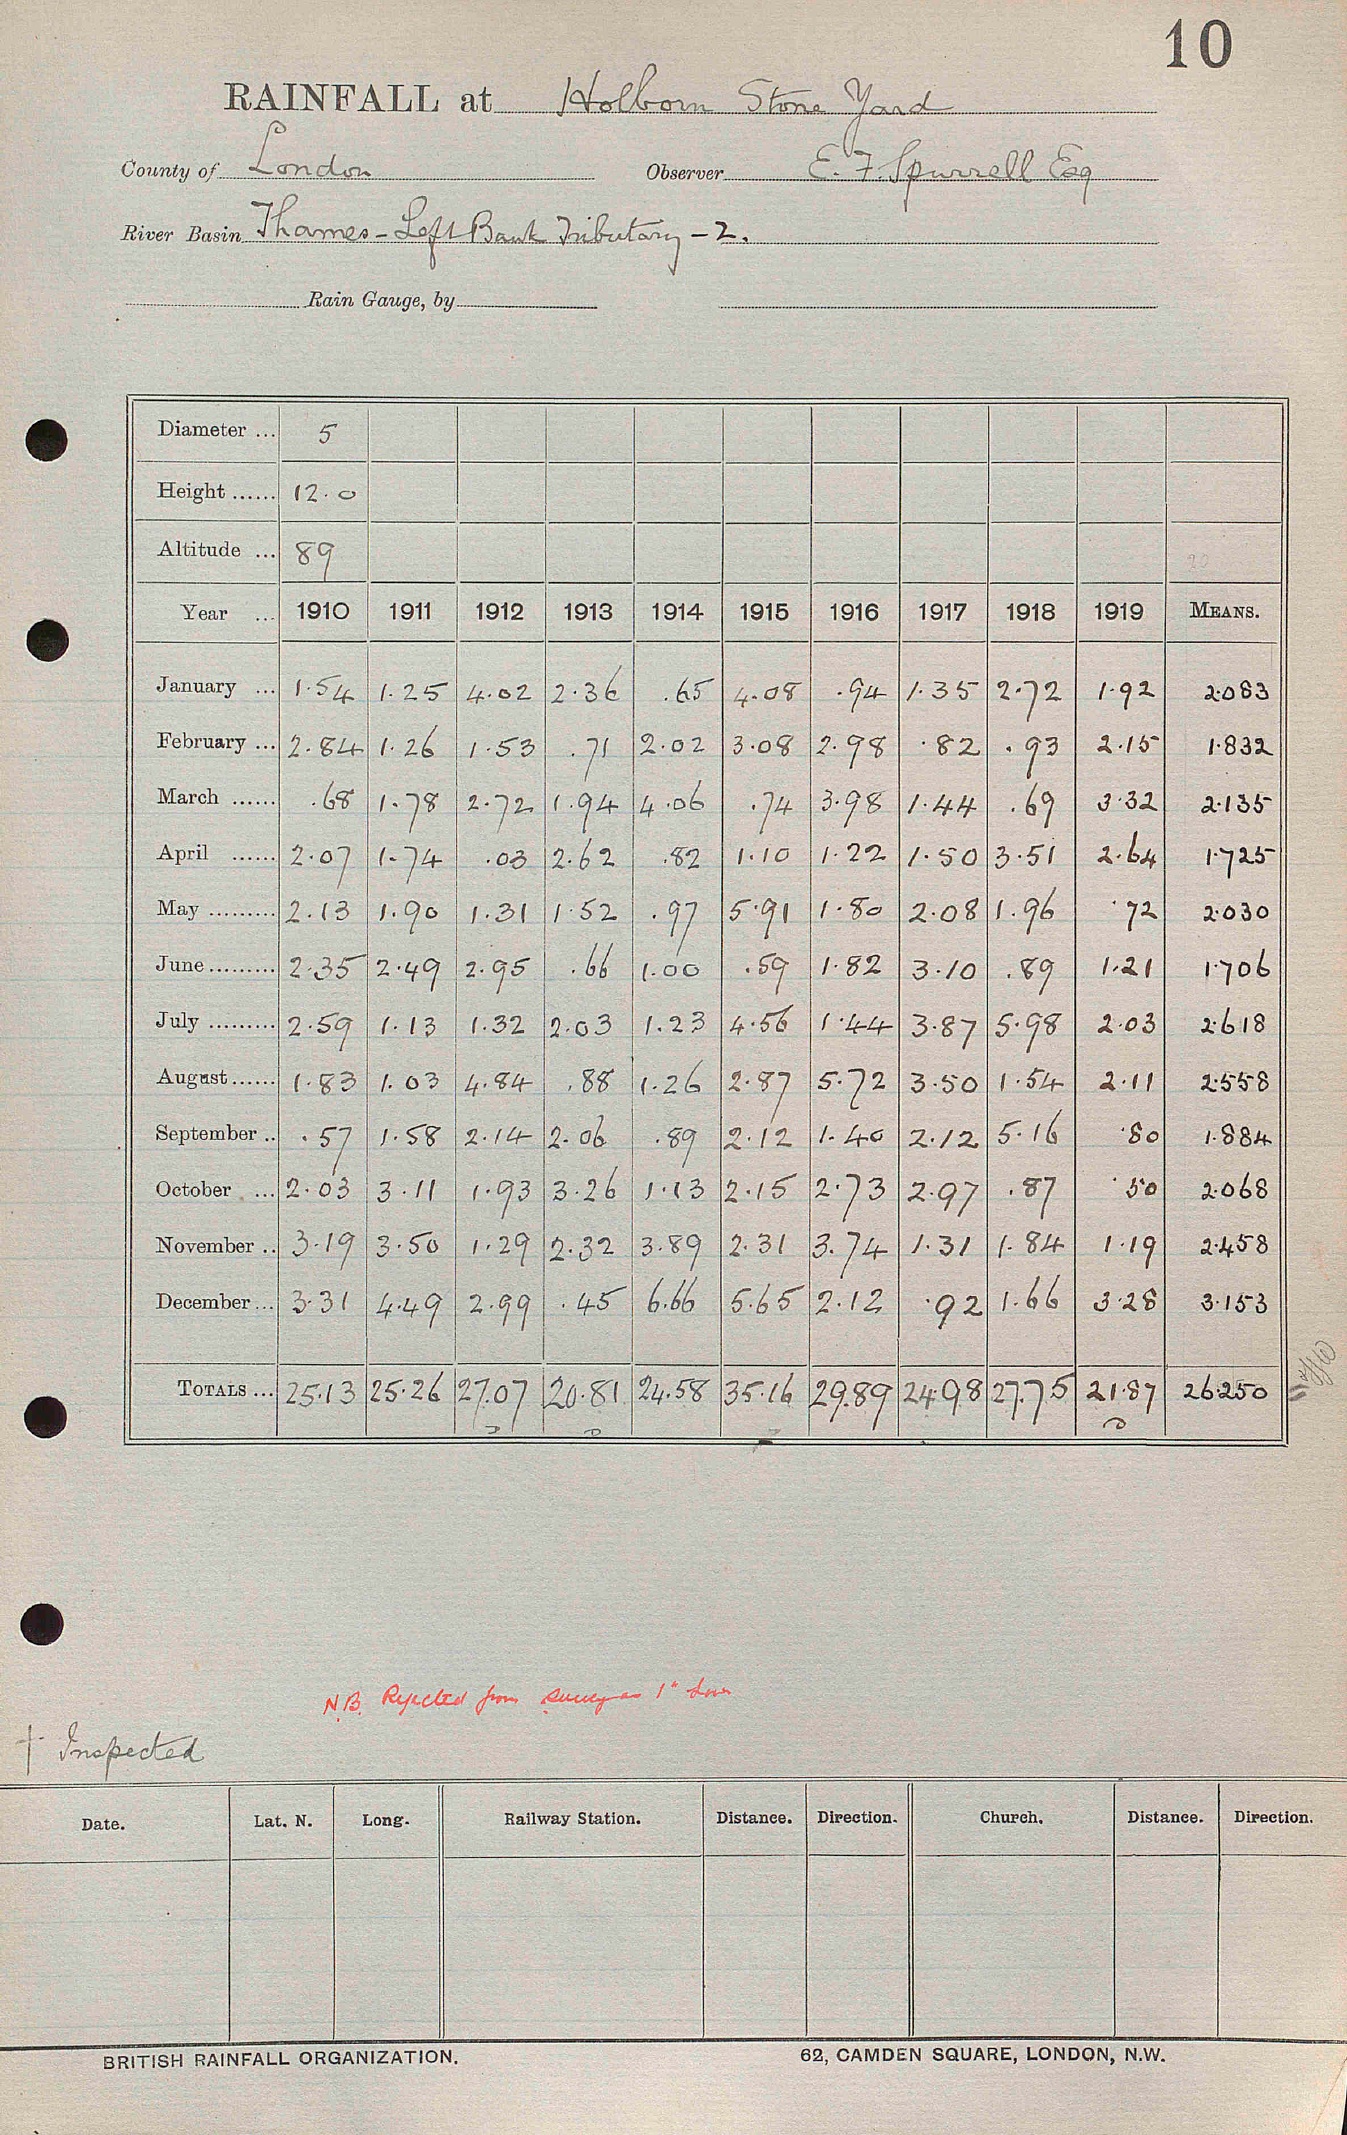 10
RAINFALL at Holborn Stone Yard
County of London Observer E. F. Spurrell Esq
River Basin Thames - Left Bank Tributary - 2.
Rain Gauge, by
Diameter ... 5
Height ...... 12.0
Altitude ... 89
Year ... 1910 1911 1912 1913 1914 1915 1916 1917 1918 1919 MEANS.
January ... 1.54 1.25 4.02 2.36 .65 4.08 .94 1.35 2.72 1.92 2.083
February ... 2.84 1.26 1.53 .71 2.02 3.08 2.98 .82 .93 2.15 1.832
March ...... .68 1.78 2.72 1.94 4.06 .74 3.98 1.44 .69 3.32 2.135
April ...... 2.07 1.74 .03 2.62 .82 1.10 1.22 1.50 3.51 2.64 1.725
May ......... 2.13 1.90 1.31 1.52 .97 5.91 1.80 2.08 1.96 .72 2.030
June ......... 2.35 2.49 2.95 .66 1.00 .59 1.82 3.10 .89 1.21 1.706
July ......... 2.59 1.13 1.32 2.03 1.23 4.56 1.44 3.87 5.98 2.03 2.618
August ...... 1.83 1.03 4.84 .88 1.26 2.87 5.72 3.50 1.54 2.11 2.558
September .. .57 1.58 2.14 2.06 .89 2.12 1.40 2.12 5.16 .80 1.884
October ... 2.03 3.11 1.93 3.26 1.13 2.15 2.73 2.97 .87 .50 2.068
November .. 3.19 3.50 1.29 2.32 3.89 2.31 3.74 1.31 1.84 1.19 2.458
December ... 3.31 4.49 2.99 .45 6.66 5.65 2.12 .92 1.66 3.28 3.153
TOTALS ... 25.13 25.26 27.07 20.81 24.58 35.16 29.89 24.98 27.75 21.87 26.250
N.B. Rejected from as 1"
† Inspected
Date. Lat. N. Long. Railway Station. Distance. Direction. Church. Distance. Direction.
BRITISH RAINFALL ORGANIZATION. 62, CAMDEN SQUARE, LONDON, N.W.